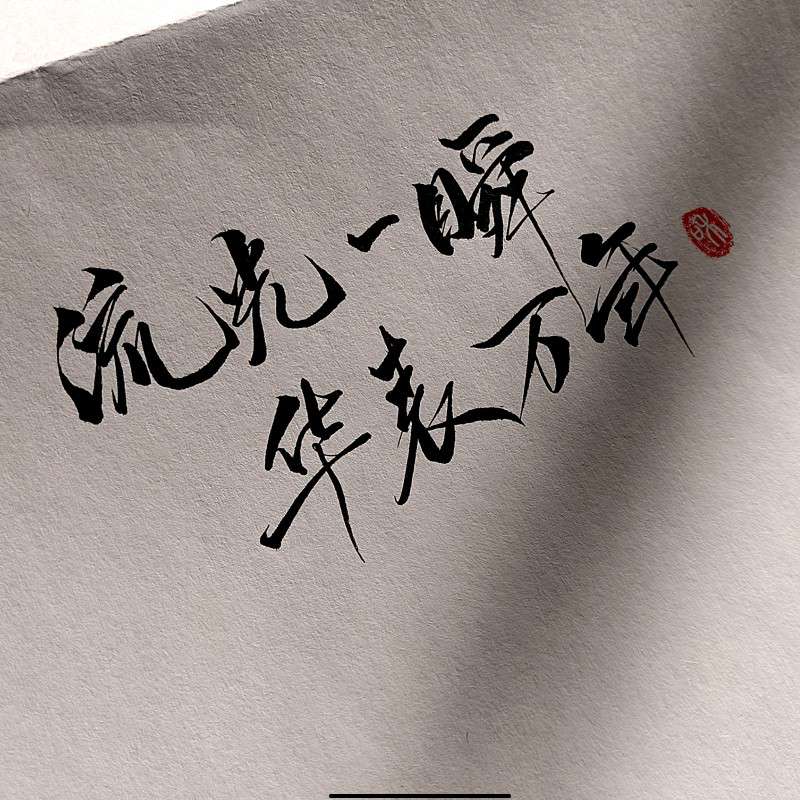 流光一瞬
华表万年